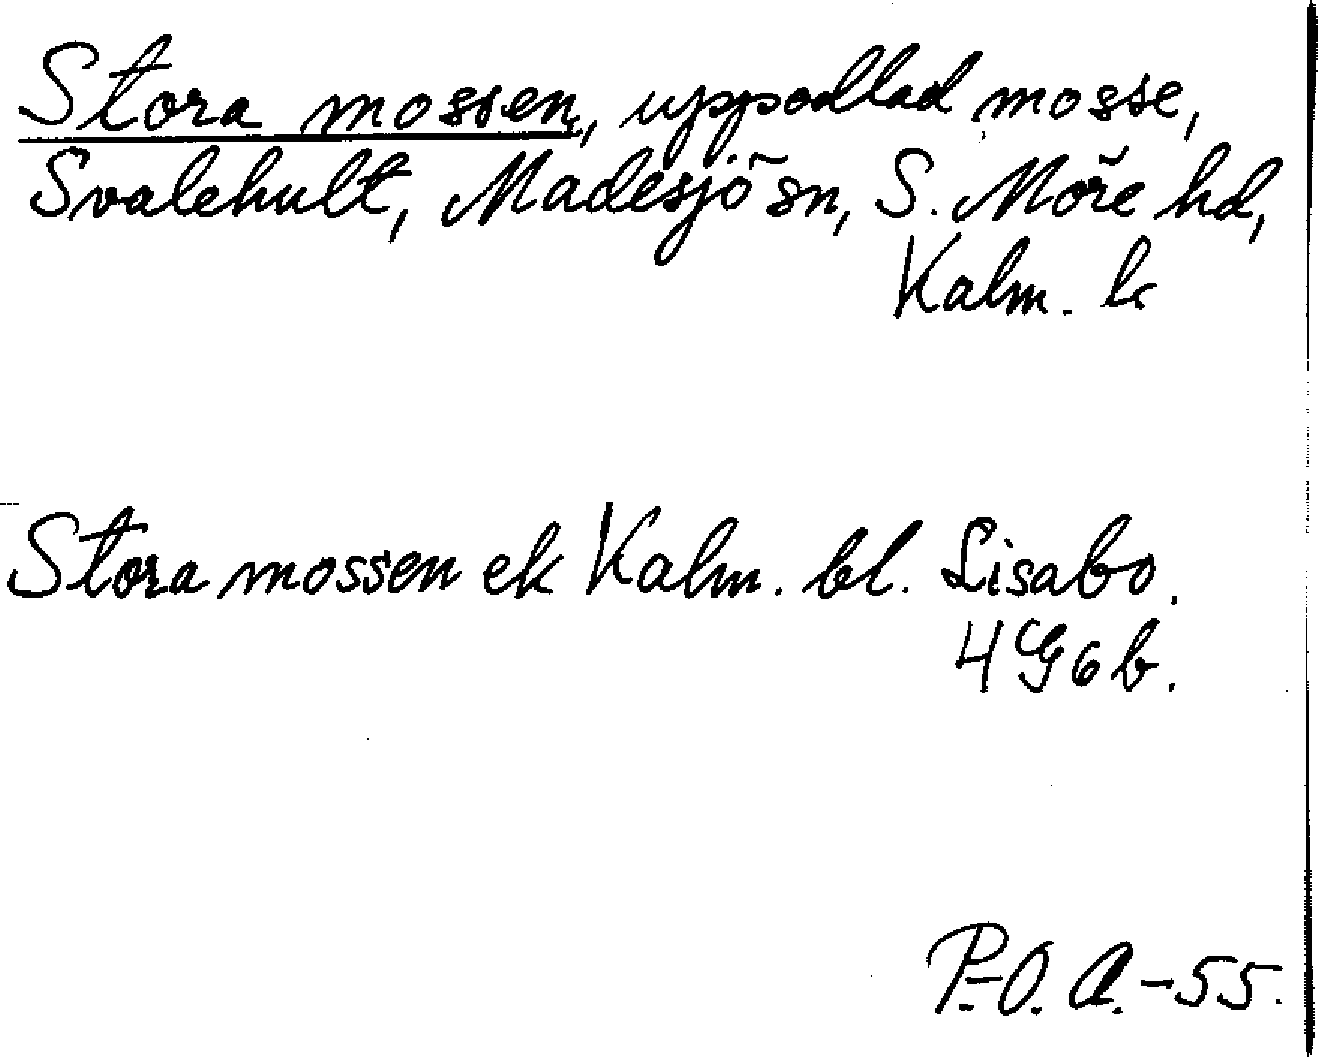 Stora mossen, uppodlad mosse,
Svalehult, Madesjö sn, S. Möre hd,
Kalm. l.
Stora mossen ek Kalm. bl. Lisabo.
4G6b.
P.-O. A.-55.